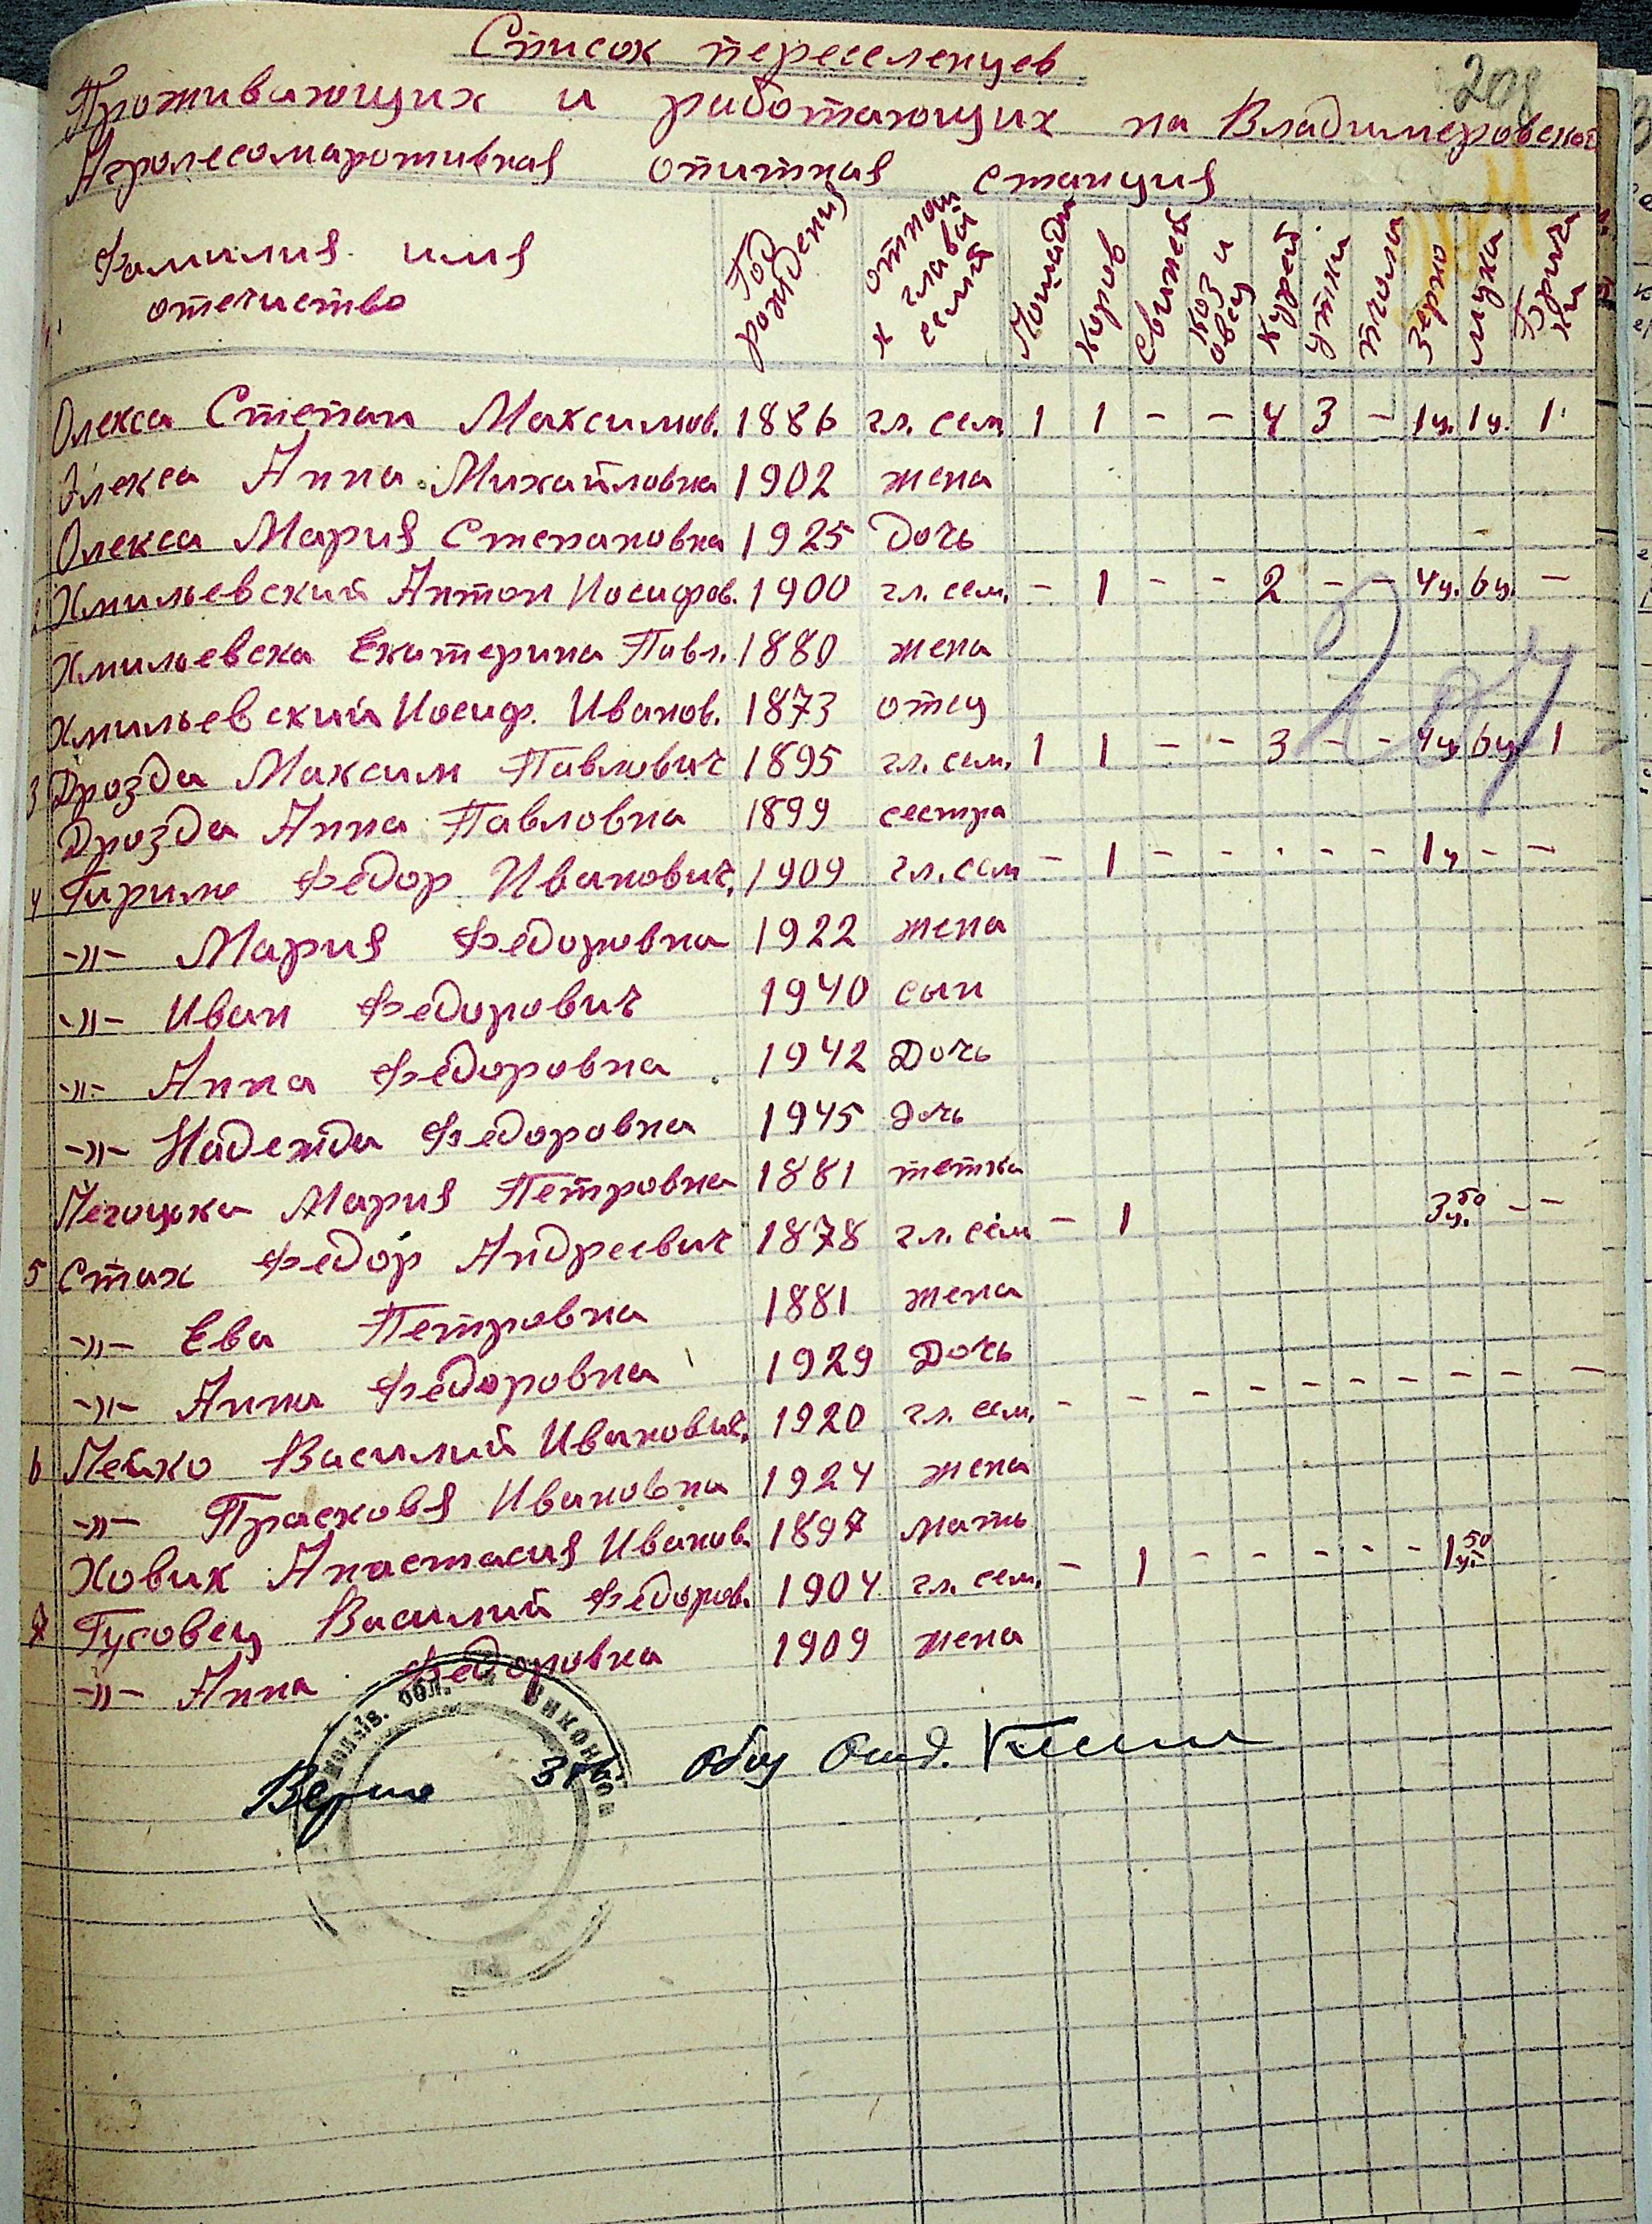 208
Список переселенцев
Проживающих и работающих на Владимеровской
Агролесомаротивная опитная станция
Фамилия имя отечиство Год рождения отнош к главы семий Лошадь Коров Свиней Коз и овец Курей утки пчола Зерно мука Брички
Олекса Степан Максимов. 1886 гл. сем 1 1 - - 4 3 - 1ц. 1ц. 1
Олекса Анна Михайловна 1902 жена
Олекса Мария Степановна 1925 Дочь
Хмильевский Антон Иосифов. 1900 гл. сем. - 1 - - 2 - - 4ц. 6ц. -
Хмильевска Екатерина Павл. 1880 жена
Хмильевский Иосиф. Иванов. 1873 отец
3 Дрозда Максим Павлович 1895 гл. сем. 1 1 - - 3 - - 4ц 6ц 1
Дрозда Анна Павловна 1899 сестра
4 Гирило Федор Иванович. 1909 гл. сем - 1 - - - - - 1ц - -
-»- Мария Федоровна 1922 жена
-»- Иван Федорович 1940 сын
-»- Анна Федоровна 1942 Дочь
-»- Надежда Федоровна 1945 дочь
Мария Петровна 1881 тетка
5 Стах Федор Андреевич 1878 гл. сем - 1 3 50 ц. - -
-»- Ева Петровна 1881 жена
-»- Анна Федоровна 1929 Дочь
6 Пейко Василий Иванович. 1920 гл. сем. - - - - - - - - - -
-»- Прасковя Ивановна 1924 жена
Ховик Анастасия Иванов. 1897 мать
7 Гусовец Василий Федоров. 1904 гл. сем. - 1 - - - - - 1 50 ц.
-»- Анна Федоровна 1909 жена
обл. Викон
Верно Зав